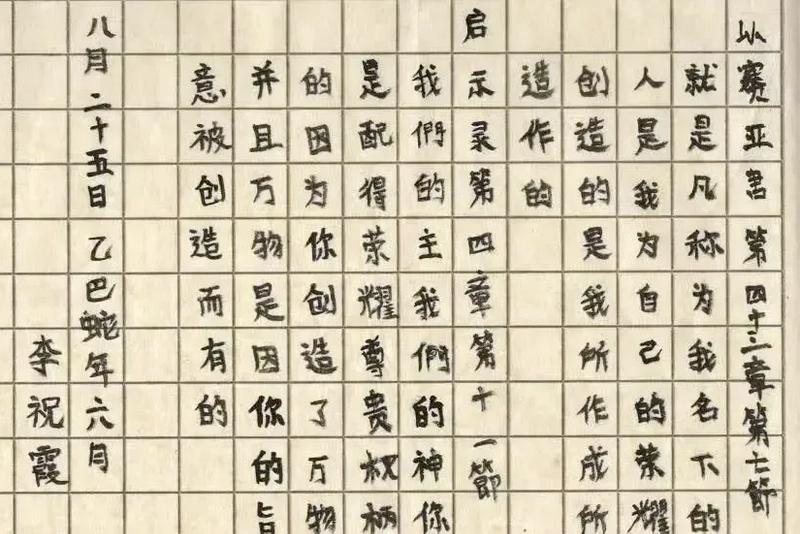 以赛亚書第四十三章第七節
就是凡称为我名下的
人是我为自己的荣耀
创造的是我所作成所
造作的
启示录第四章第十一節
我們的主我們的神你
是配得荣耀尊贵权柄
的因为你创造了万物
并且万物是因你的旨
意被创造而有的
八月二十五日 乙巳蛇年六月
李祝霞